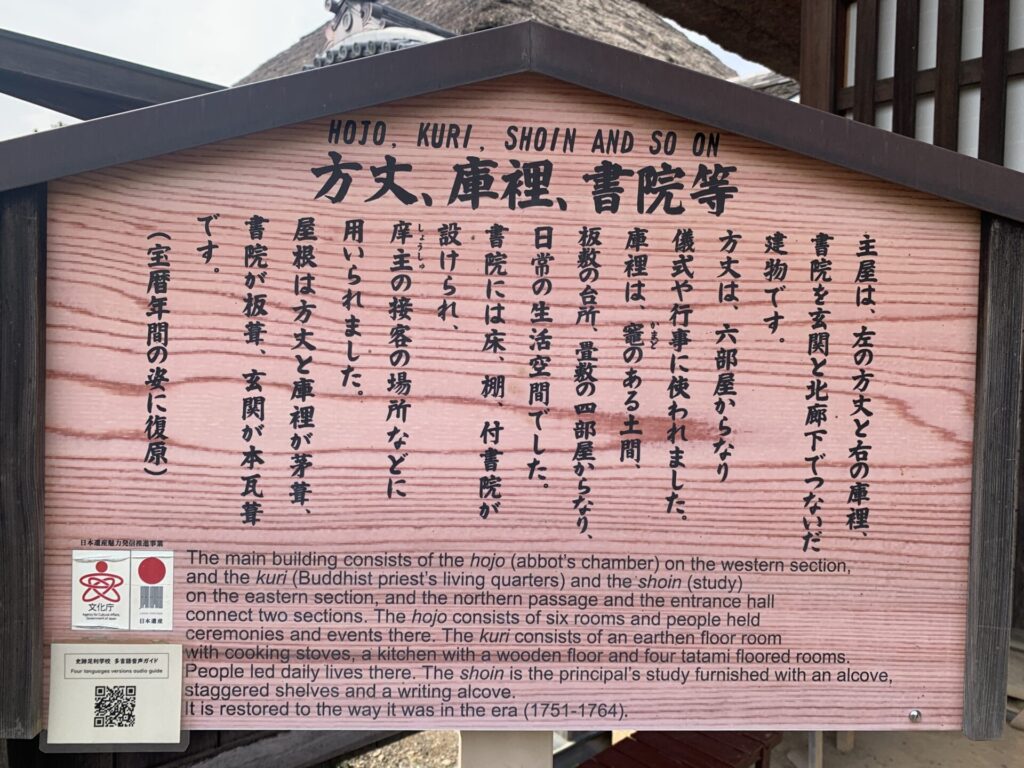 HOJO, KURI, SHOIN AND SO ON
方丈、庫裡、書院等
主屋は、左の方丈と右の庫裡、
書院を玄関と北廊下でつないだ
建物です。
方丈は、六部屋からなり
儀式や行事に使われました。
庫裡は、竈のある土間、
かまど
板敷の台所、畳敷の四部屋からなり、
日常の生活空間でした。
書院には床、棚、付書院が
設けられ、
庠主の接客の場所などに
しょうしゅ
用いられました。
屋根は方丈と庫裡が茅葺、
書院が板葺、玄関が本瓦葺
です。
（宝暦年間の姿に復原）
日本遺産魅力発信推進事業
文化庁
Agency for Cultural Affairs,
Government of Japan
日本遺産
The main building consists of the hojo (abbot's chamber) on the western section,
and the kuri (Buddhist priest's living quarters) and the shoin (study)
on the eastern section, and the northern passage and the entrance hall
connect two sections. The hojo consists of six rooms and people held
ceremonies and events there. The kuri consists of an earthen floor room
with cooking stoves, a kitchen with a wooden floor and four tatami floored rooms.
People led daily lives there. The shoin is the principal's study furnished with an alcove,
staggered shelves and a writing alcove.
It is restored to the way it was in the era (1751-1764).
史跡足利学校 多言語音声ガイド
Four languages versions audio guide